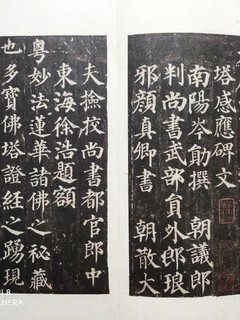 塔感應碑文
南陽岑勛撰 朝議郎
判尚書武部員外郎琅
邪顏真卿書 朝散大
夫撿校尚書都官郎中
東海徐浩題額
粵妙法蓮華諸佛之祕藏
也多寶佛塔證經之踴現